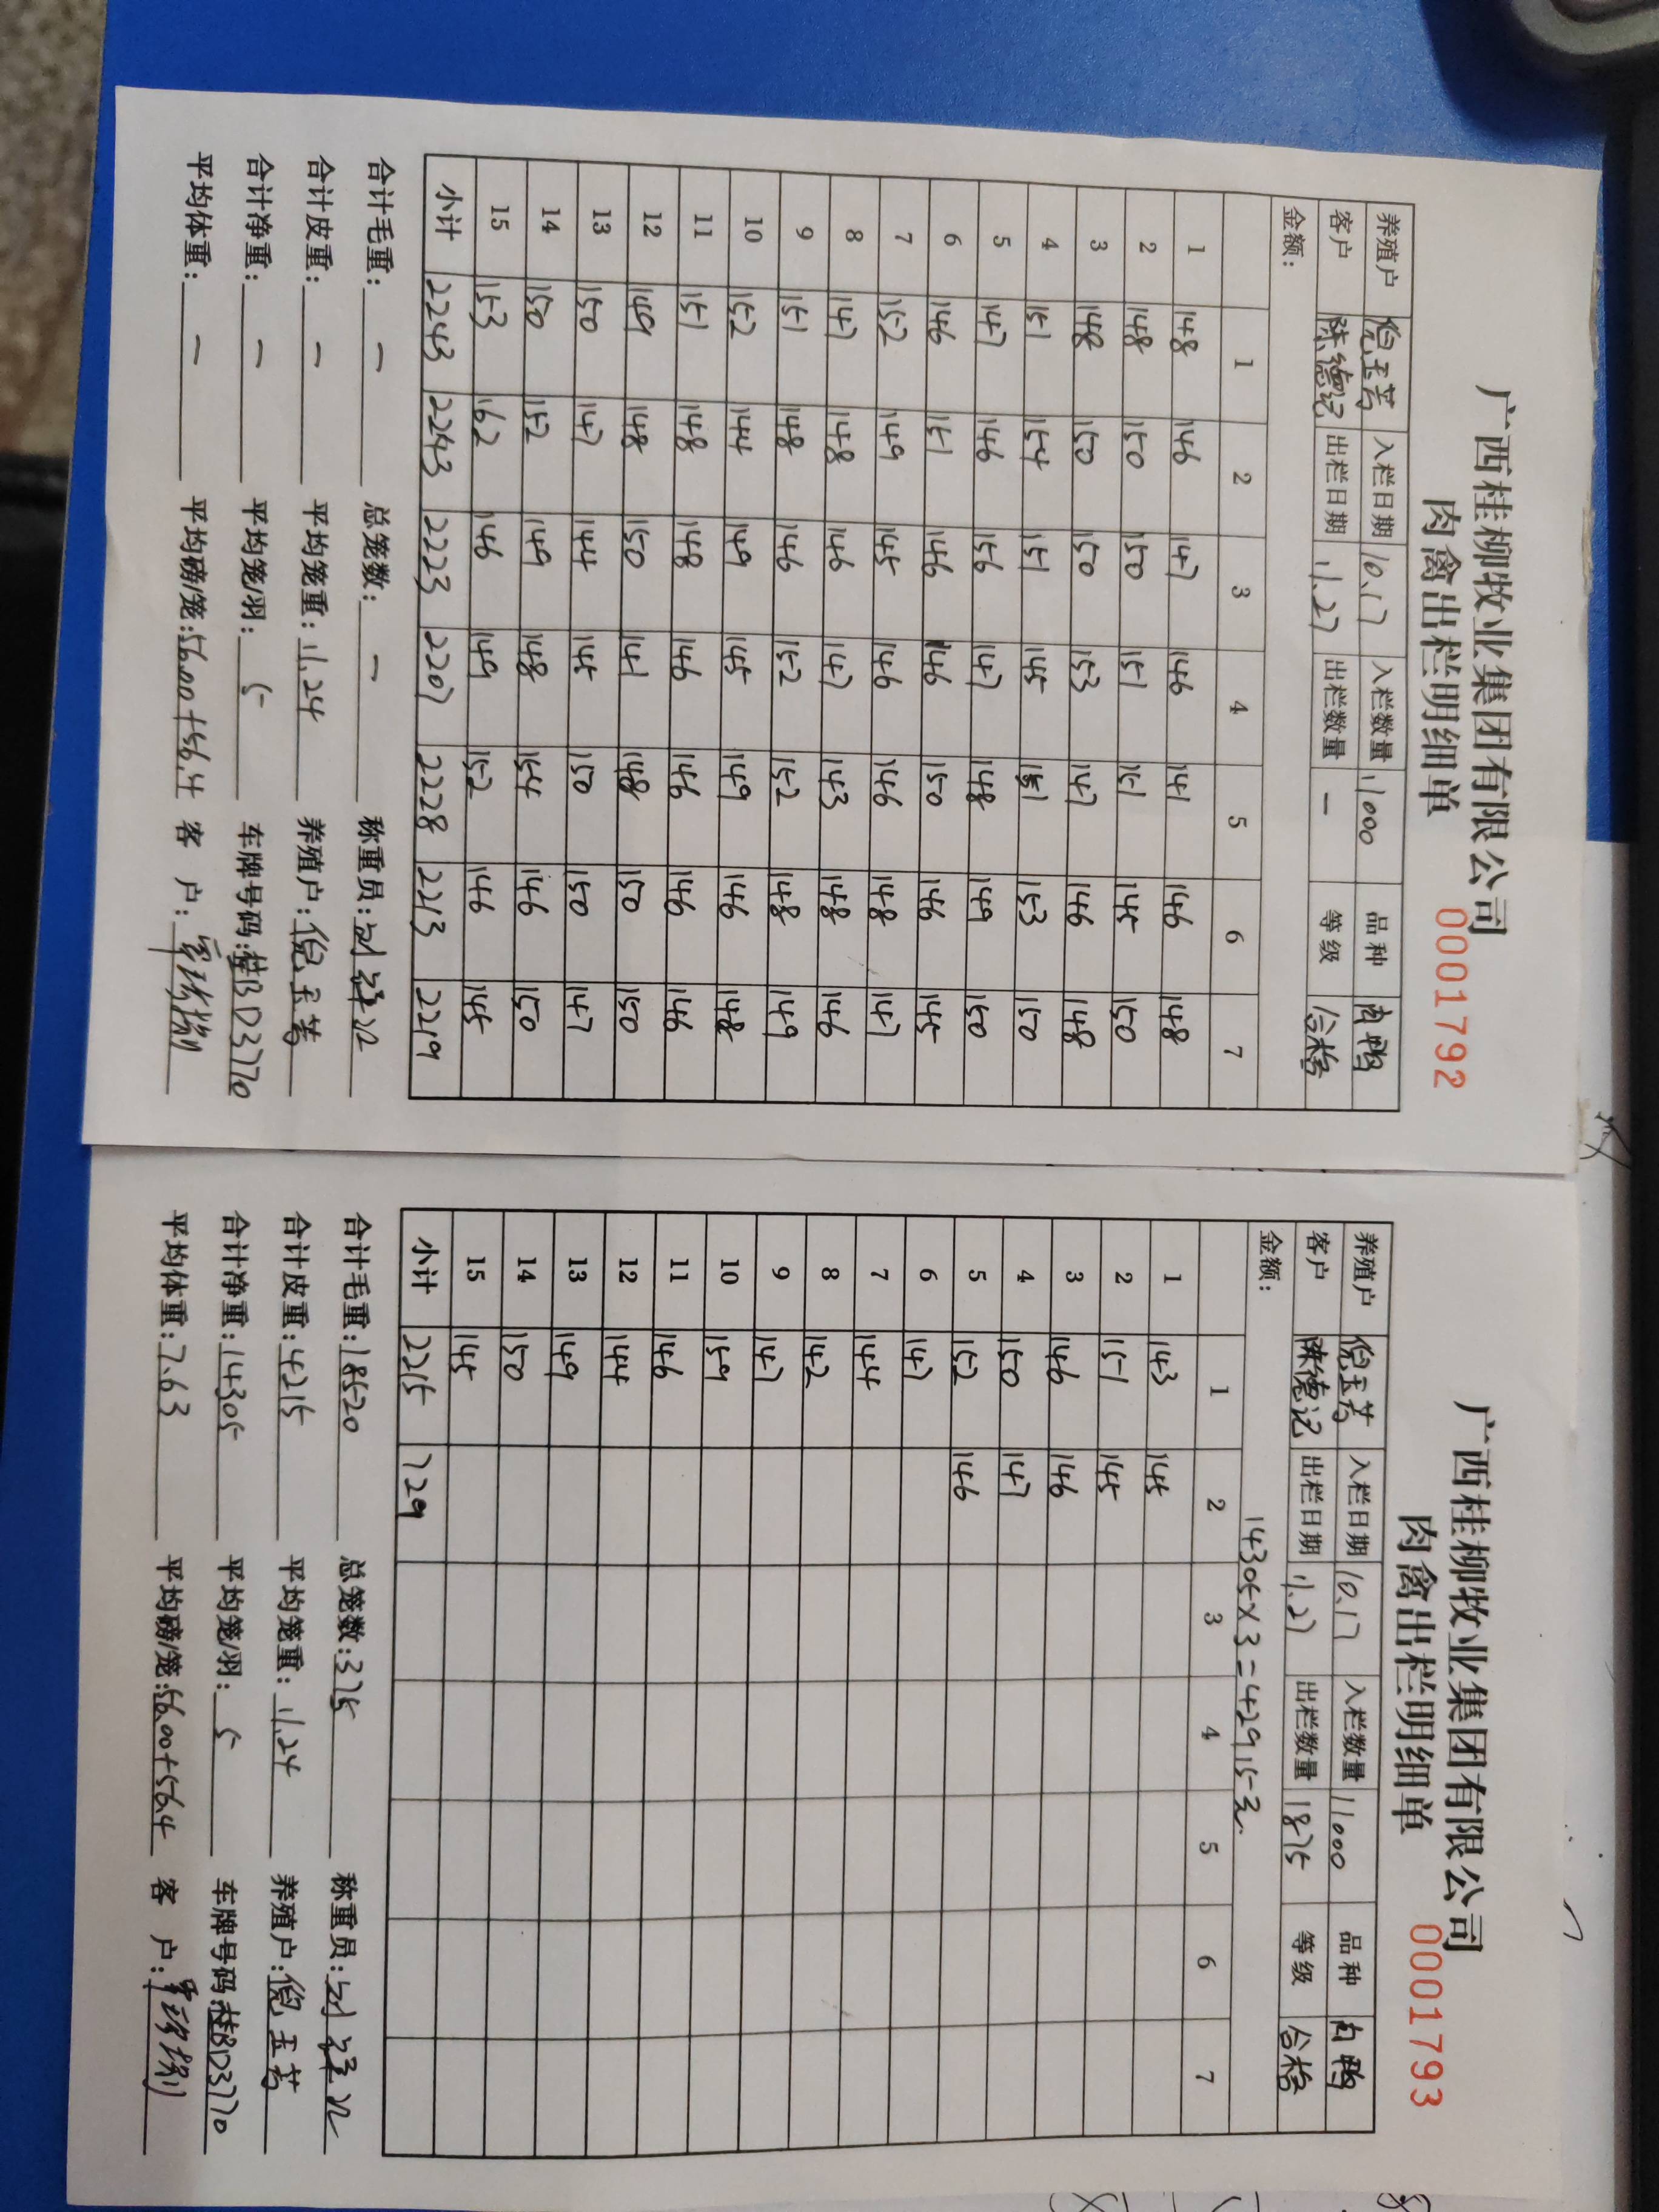 广西桂柳牧业集团有限公司
肉禽出栏明细单 0001792
养殖户 倪玉芳 入栏日期 10.17 入栏数量 11000 品种 肉鸭
客户 陈德记 出栏日期 11.27 出栏数量 — 等级 合格
金额：
1 2 3 4 5 6 7
1 148 146 147 146 141 146 148
2 148 150 150 151 151 145 150
3 148 150 150 153 147 146 148
4 151 154 151 145 151 153 150
5 147 146 156 147 148 149 150
6 146 151 146 146 150 146 145
7 152 149 145 146 146 148 147
8 147 148 146 147 143 148 146
9 151 148 146 152 152 148 149
10 152 144 149 145 149 146 148
11 151 148 148 146 146 146 146
12 149 148 150 141 148 150 150
13 150 147 144 145 150 150 147
14 150 152 149 148 154 146 150
15 153 162 146 149 152 146 145
小计 2243 2243 2223 2207 2228 2213 2219
合计毛重：— 总笼数：— 称重员：
合计皮重：— 平均笼重：11.24 养殖户：倪玉芳
合计净重：— 平均笼/羽：5 车牌号码：桂BD3770
平均体重：— 平均磅/笼：56.00+56.4 客 户：
广西桂柳牧业集团有限公司
肉禽出栏明细单 0001793
养殖户 倪玉芳 入栏日期 10.17 入栏数量 11000 品种 肉鸭
客户 陈德记 出栏日期 11.27 出栏数量 1875 等级 合格
金额： 14305×3=42915元.
1 2 3 4 5 6 7
1 143 145
2 151 145
3 146 146
4 150 147
5 152 146
6 147
7 144
8 142
9 147
10 159
11 146
12 144
13 149
14 150
15 145
小计 2215 729
合计毛重：18520 总笼数：375 称重员：
合计皮重：4215 平均笼重：11.24 养殖户：倪玉芳
合计净重：14305 平均笼/羽：5 车牌号码：桂BD3770
平均体重：7.63 平均磅/笼：56.00+56.4 客 户：